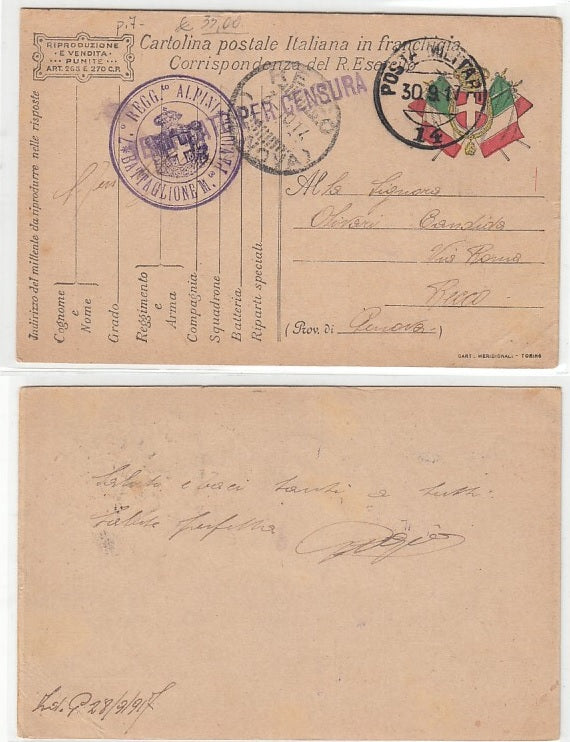 p.7-
£ 35,00
RIPRODUZIONE
E VENDITA
PUNITE
ART. 265 E 270 C.P.
Cartolina postale Italiana in franchigia
Corrispondenza del R. Eser
POSTA MILITARE
30.9.17
14
1° REGG.to ALPINI
BATTAGLIONE M.e
PER CENSURA
RECCO
Indirizzo del mittente da riprodurre nelle risposte
Cognome
e
Nome
Grado
Reggimento
e
Arma
Compagnia
Squadrone
Batteria
Riparti speciali
Alla Signora
Olivari Candida
Via Roma
Recco
(Prov. di Genova)
CART. MERIDIONALI - TORINO
Saluti e baci tanti a tutti.
Salute perfetta
28/9/917